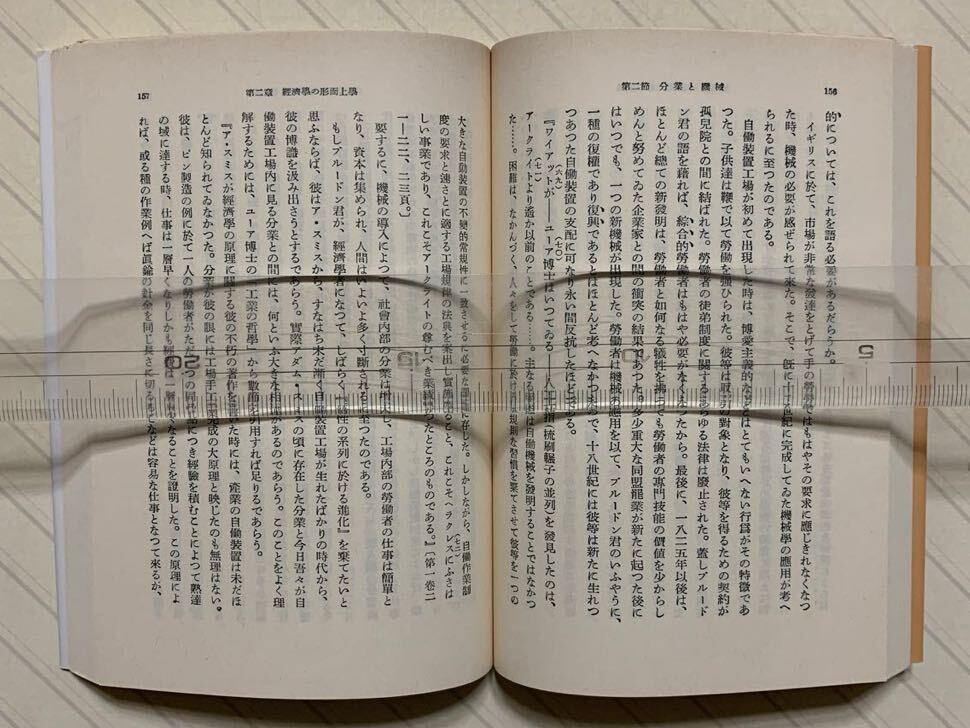 第二節 分業と機械
156
的については、これを語る必要があるだらうか。
イギリスに於て、市場が非常な發達をとげて手の勞働ではもはやその要求に應じきれなくなつ
た時、機械の必要が感ぜられて來た。そこで、既に十八世紀に完成してゐた機械學の應用が考へ
られるに至つたのである。
自働裝置工場が初めて出現した時は、博愛主義的などとはとてもいへない行爲がその特徴であ
つた。子供達は鞭で以て勞働を强ひられた。彼等は取引の對象となり、彼等を得るための契約が
孤兒院との間に結ばれた。勞働者の徒弟制度に關するあらゆる法律は廢止された。蓋しプルード
ン君の語を藉れば、綜合的勞働者はもはや必要がなくなつたから。最後に、一八二五年以後は、
ほとんど總ての新發明は、勞働者と如何なる犠牲を拂つても勞働者の專門技能の價値を少からし
めんと努めてゐた企業家との間の衝突の結果であつた。多少重大な同盟罷業が新たに起つた後に
はいつでも、一つの新機械が出現した。勞働者は機械の應用を以て、プルードン君のいふやうに、
一種の復權であり復興であるとはほとんど考へなかつたもので、十八世紀には彼等は新たに生れつ
つあつた自働裝置の支配に可なり永い間反抗したほどである。
『ワイアットが――ユーア博士はいつてゐる――人工手指(梳刷輾子の並列)を發見したのは、
(六九)
(七〇)
アークライトより遙か以前のことである……。主なる困難は自働機械を發明することではなかつ
(七一)
た……。困難は、なかんづく、人々をして勞働に於ける不規則な習慣を棄てさせて彼等を一つの
157
第二章 經濟學の形而上學
大きな自働裝置の不變的常規性に一致させるに必要な訓練に存した。しかしながら、自働作業制
度の要求と速さとに適する工場規律の法典を案出し實施すること、これこそヘラクレスにふさは
(七二)
しい事業であり、これこそアークライトの尊むべき業績だつたところのものである。』〔第一卷二
一―二二、二三頁。〕
要するに、機械の導入によつて、社會內部の分業は增大し、工場內部の勞働者の仕事は簡單と
なり、資本は集められ、人間はいよいよ多く寸斷されるに至つたのである。
もしプルードン君が、經濟學者になつて、しばらく『悟性の系列に於ける進化』を棄てたいと
思ふならば、彼はア・スミスから、すなはち未だ漸く自働裝置工場が生れたばかりの時代から、
彼の博識を汲み出さうとするであらう。實際アダム・スミスの頃に存在した分業と今日吾々が自
働裝置工場內に見る分業との間に、何といふ大きな相違があるのであらう。このことをよく理
解するためには、ユーア博士の『工業の哲學』から數箇所を引用すれば足りるであらう。
『ア・スミスが經濟學の原理に關する彼の不朽の著作を書いた時には、產業の自働裝置は未だほ
とんど知られてゐなかつた。分業が彼の眼には工場手工業完成の大原理と映じたのも無理はない。
彼は、ピン製造の例に於て一人の勞働者がただ一つの同じ點につき經驗を積むことによつて熟達
の域に達する時、仕事は一層早くなりしかも經費は一層少なくなることを證明した。この原理によ
れば、或る種の作業例へば眞鍮の針金を同じ長さに切るなどは容易な仕事となつて來るが、
5
10
15
20